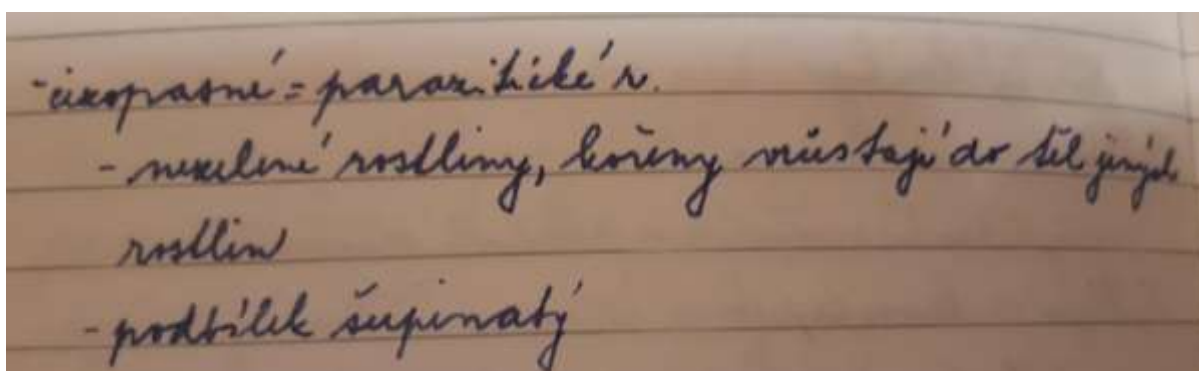 - cizopasné = parazitické r.
- nezelené rostliny, kořeny vrůstají do těl jiných
rostlin
- podbílek šupinatý